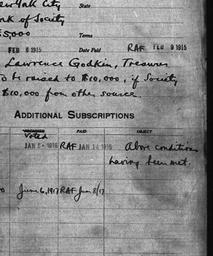 New York City State
Bank of Society
$5,000 Terms
FEB 6 1915 Date Paid RAF FEB 9 1915
Lawrence Godkin, Treasurer
To be raised to $10,000, if Society
$10,000 from other source.
ADDITIONAL SUBSCRIPTIONS
Voted PAID OBJECT
JAN 1916 RAF JAN 14 1916 Above conditions
having been met.
June 6, 1917 RAF Jun 8/17